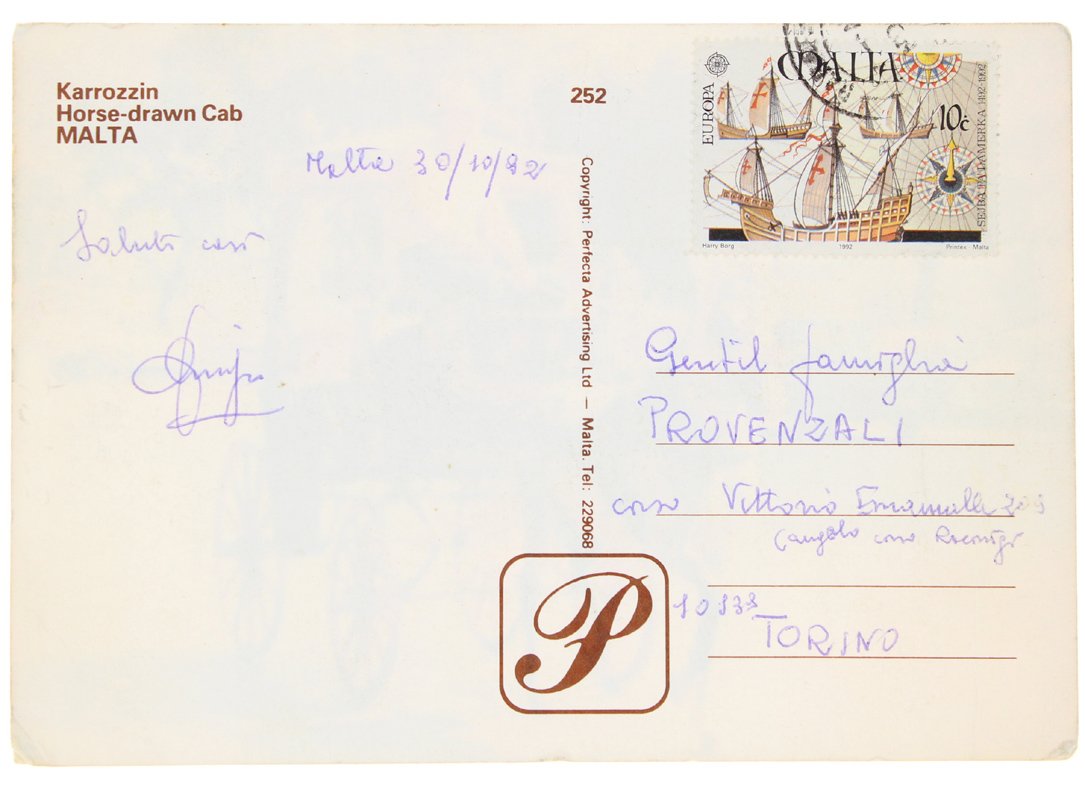 Karrozzin
Horse-drawn Cab
MALTA
252
Malta 30/10/92
Saluti cari
Copyright: Perfecta Advertising Ltd — Malta. Tel: 229068
P
EUROPA
MALTA
10c
SEJBA TA' L-AMERKA 1492-1992
Harry Borg
1992
Printex - Malta
Gentil famiglia
PROVENZALI
corso Vittorio Emanuele
(angolo corso Racconigi
TORINO